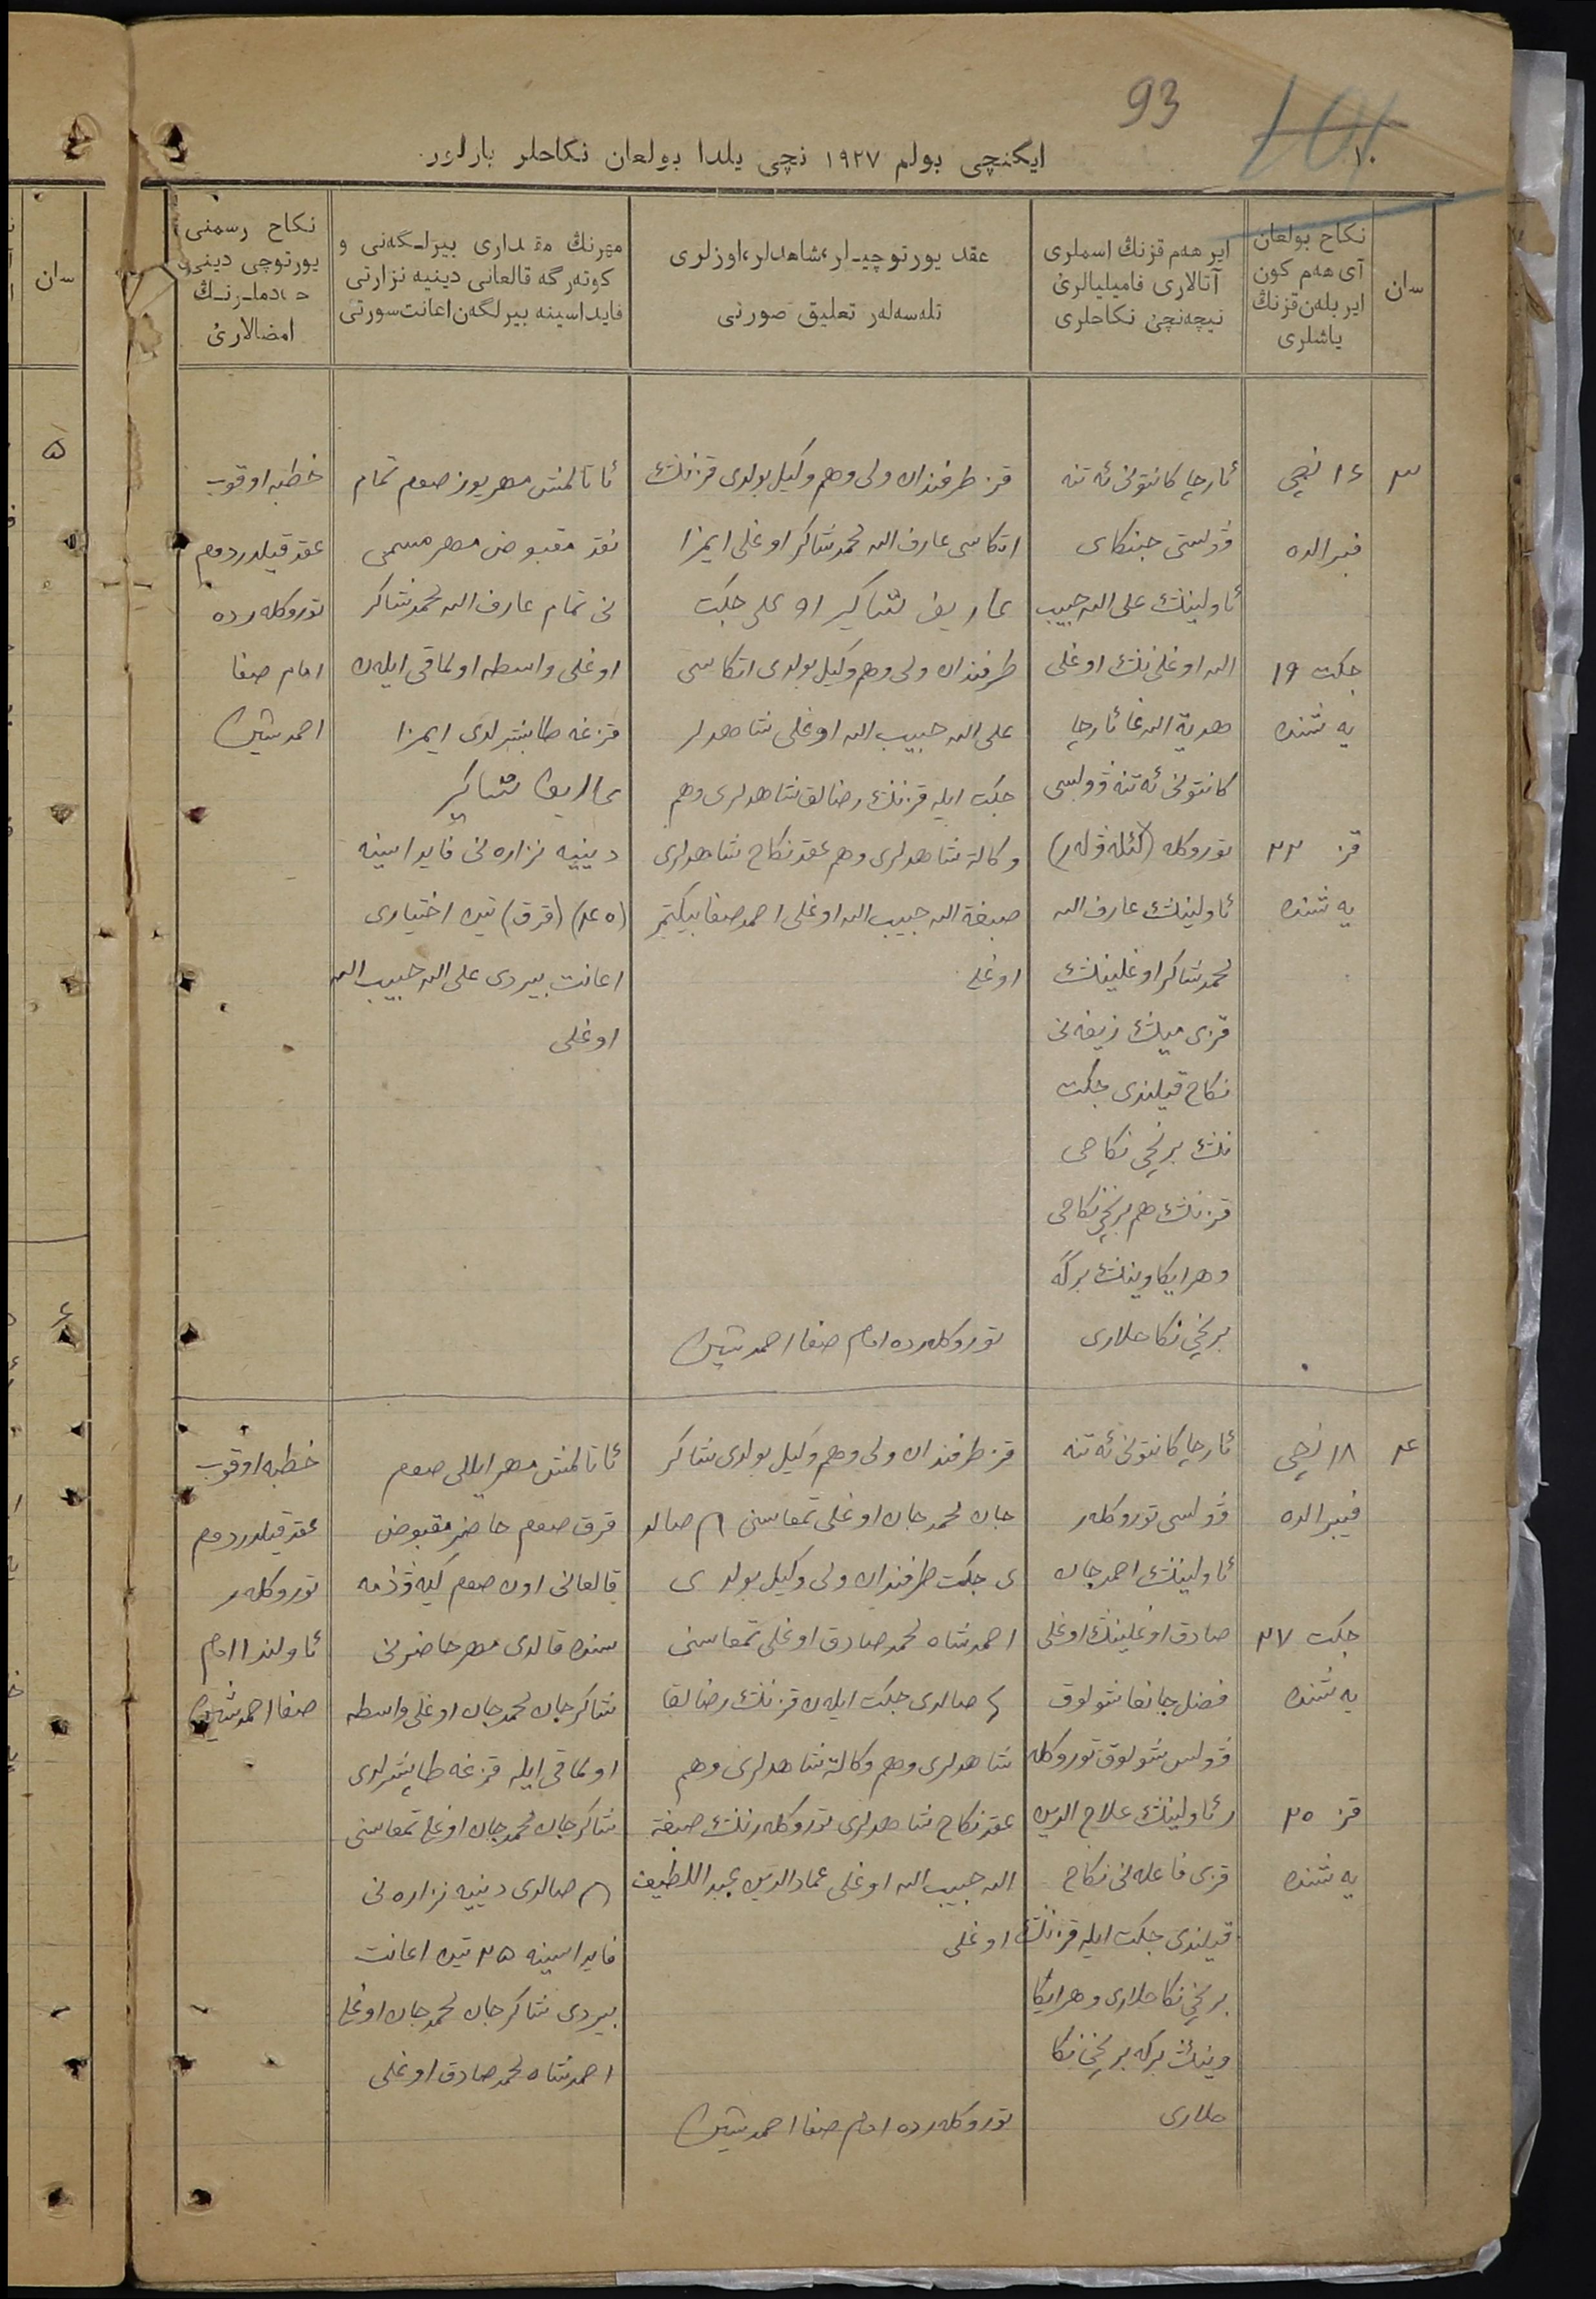 93
101
١٠
ايكنچی بولم ١٩٢٧ نچی يلدا بولعان نكاحلر بارلور.
سان
نكاح بولعان
آی هەم كون
اير بلەن قزنڭ
ياشلری
اير هەم قزنڭ اسملری
آتالاری فاميليالرئ
نيچەنچئ نكاحلری
عقد يورتوچيـلر، شاهدلر، اوزلری
تلەسەلەر تعليق صورتی
مهرنڭ مقداری بيرلـگەنی و
كوتەرگە قالعانی دينيه نزارتی
فايداسينه بيرلگەن اعانت سورتی
نكاح رسمنی
يورتوچی دينی
امضالارئ
٣
١٦ نچی
فبرالده
جكت ١٩
يەشندە
قز ٢٣
يەشندە
ئارچا كانتونی ئەتنە
ڤولستی جنكای
ئاولينڭ علی الله حبيب
الله اوغلی نڭ اوغلی
هدية الله غا ئارچا
كانتونی ئەتنە ڤولسی
توروكلە
ئاولينڭ عارف الله
محمد شاكر اوغلينڭ
قزی زيفەنی
نكاح قيلندی جكت
نڭ برنچی نكاحی
قزنڭ هم برنچی نكاحی
وهر ايكاوينڭ برگە
برنچی نكاحلاری
قز طرفندان ولی وهم وكيل بولدی قزنڭ
اتكاسی عارف الله محمد شاكر اوغلی ايمزا
عاريف شاكير اوغلی جكت
طرفندان ولی وهم وكيل بولدی اتكاسی
علی الله حبيب الله اوغلی شاهدلر
جكت ايله قزنڭ رضالق شاهدلری وهم
وكالة شاهدلری وهم عقد نكاح شاهدلری
صبغة الله حبيب الله اوغلی احمد صفا بيكتمر
اوغلی
توروكلەردە امام صفا احمد
ئاتالمش مهر يوز صوم تمام
نقد مقبوض مهر مسمی
نی تمام عارف الله محمد شاكر
اوغلی واسطه اولماقی ايلەن
قزغە طابشرلدی ايمزا
عاريف شاكير
دينيه نزارەنی فايداسينە
(قرق) تين اختياری
اعانت بيردی علی الله حبيب الله
اوغلی
خطبه اوقوب
عقد قيلدردم
توروكلەردە
امام صفا
احمد
٤
١٨ نچی
فيبرالدە
جكت ٢٧
يەشندە
قز ٢٥
يەشندە
ئارچا كانتونی ئەتنە
ڤولسی توروكلەر
ئاولينڭ احمد جان
صادق اوغلينڭ اوغلی
فضل جانغا شولوق
ڤولس شولوق توروكلە
ر ئاولينڭ علاج الدين
قزی فاعلەنی نكاح
قيلندی جكت ايله قزنڭ
برنچی نكاحلاری وهر ايكا
وينڭ برگە برنچی نكا
حلاری
قز طرفندان ولی وهم وكيل بولدی شاكر
جان محمد جان اوغلی تمغاسنی صالد
ی جكت طرفندان ولی وكيل بولدی
احمد شاه محمد صادق اوغلی تمغاسنی
صالدی جكت ايلەن قزنڭ رضالقا
شاهدلری وهم وكالة شاهدلری وهم
عقد نكاح شاهدلری توروكلەرنڭ صبغة
الله حبيب الله اوغلی عماد الدين عبد اللطيف
اوغلی
توروكلەردە امام صفا احمد
ئاتالمش مهر ايللی صوم
قرق صوم حاضر مقبوض
قالعانی اون صوم كيەو ذمه
سندە قالدی مهر حاضرنی
شاكر جان محمد جان اوغلی واسطه
اولماقی ايله قزغە طابشرلدی
شاكر جان محمد جان اوغلی تمغاسنی
صالدی دينيه نزارەنی
فايداسينە ٢٥ تين اعانت
بيردی شاكر جان محمد جان اوغلی
احمد شاه محمد صادق اوغلی
خطبه اوقوب
عقد قيلدردم
توروكلەر
ئاولندا امام
صفا احمد
سان
٥
٦